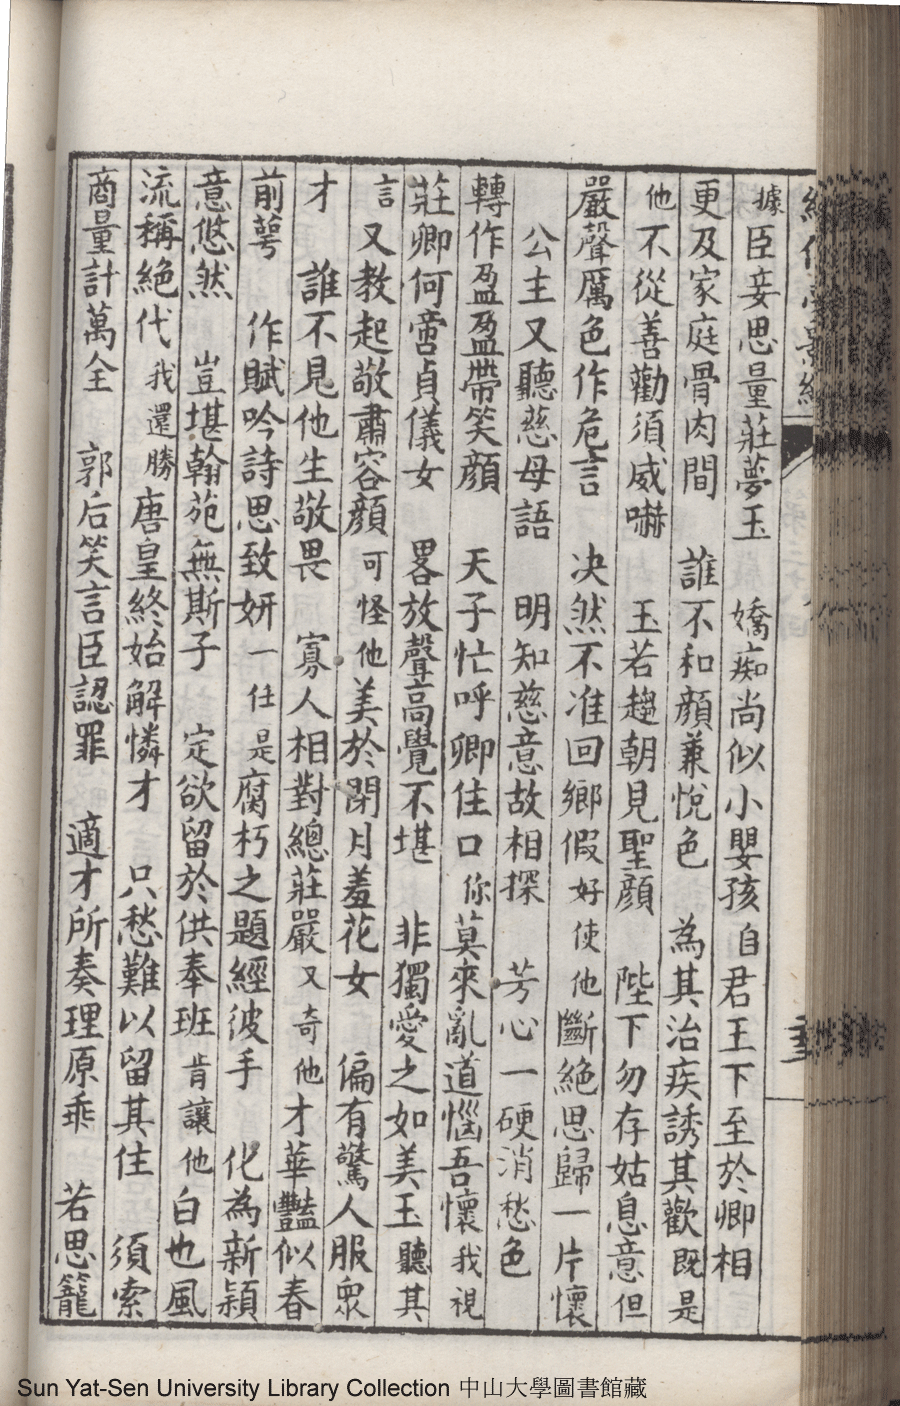 據臣妾思量莊夢玉　嬌痴尚似小嬰孩自君王下至於卿相
更及家庭骨肉間　誰不和顔兼悅色　為其治疾誘其歡既是
他不從善勸須威嚇　玉若趨朝見聖顔　陛下勿存姑息意但
嚴聲厲色作危言　决然不准回鄉假好使他斷絕思歸一片懷
公主又聽慈母語　明知慈意故相探　芳心一硬消愁色
轉作盈盈帶笑顔　天子忙呼卿住口你莫來亂道惱吾懷我視
莊卿何啻貞儀女　畧放聲高覺不堪　非獨愛之如美玉聽其
言又教起敬肅容顔可怪他美於閉月羞花女　偏有驚人服眾
才　誰不見他生敬畏　寡人相對總莊嚴又奇他才華豔似春
前萼　作賦吟詩思致妍一任是腐朽之題經彼手　化為新穎
意悠然　豈堪翰苑無斯子　定欲留於供奉班肯讓他白也風
流稱絕代我還勝唐皇終始解憐才　只愁難以留其住　須索
商量計萬全　郭后笑言臣認罪　適才所奏理原乖　若思籠
Sun Yat-Sen University Library Collection 中山大學圖書館藏